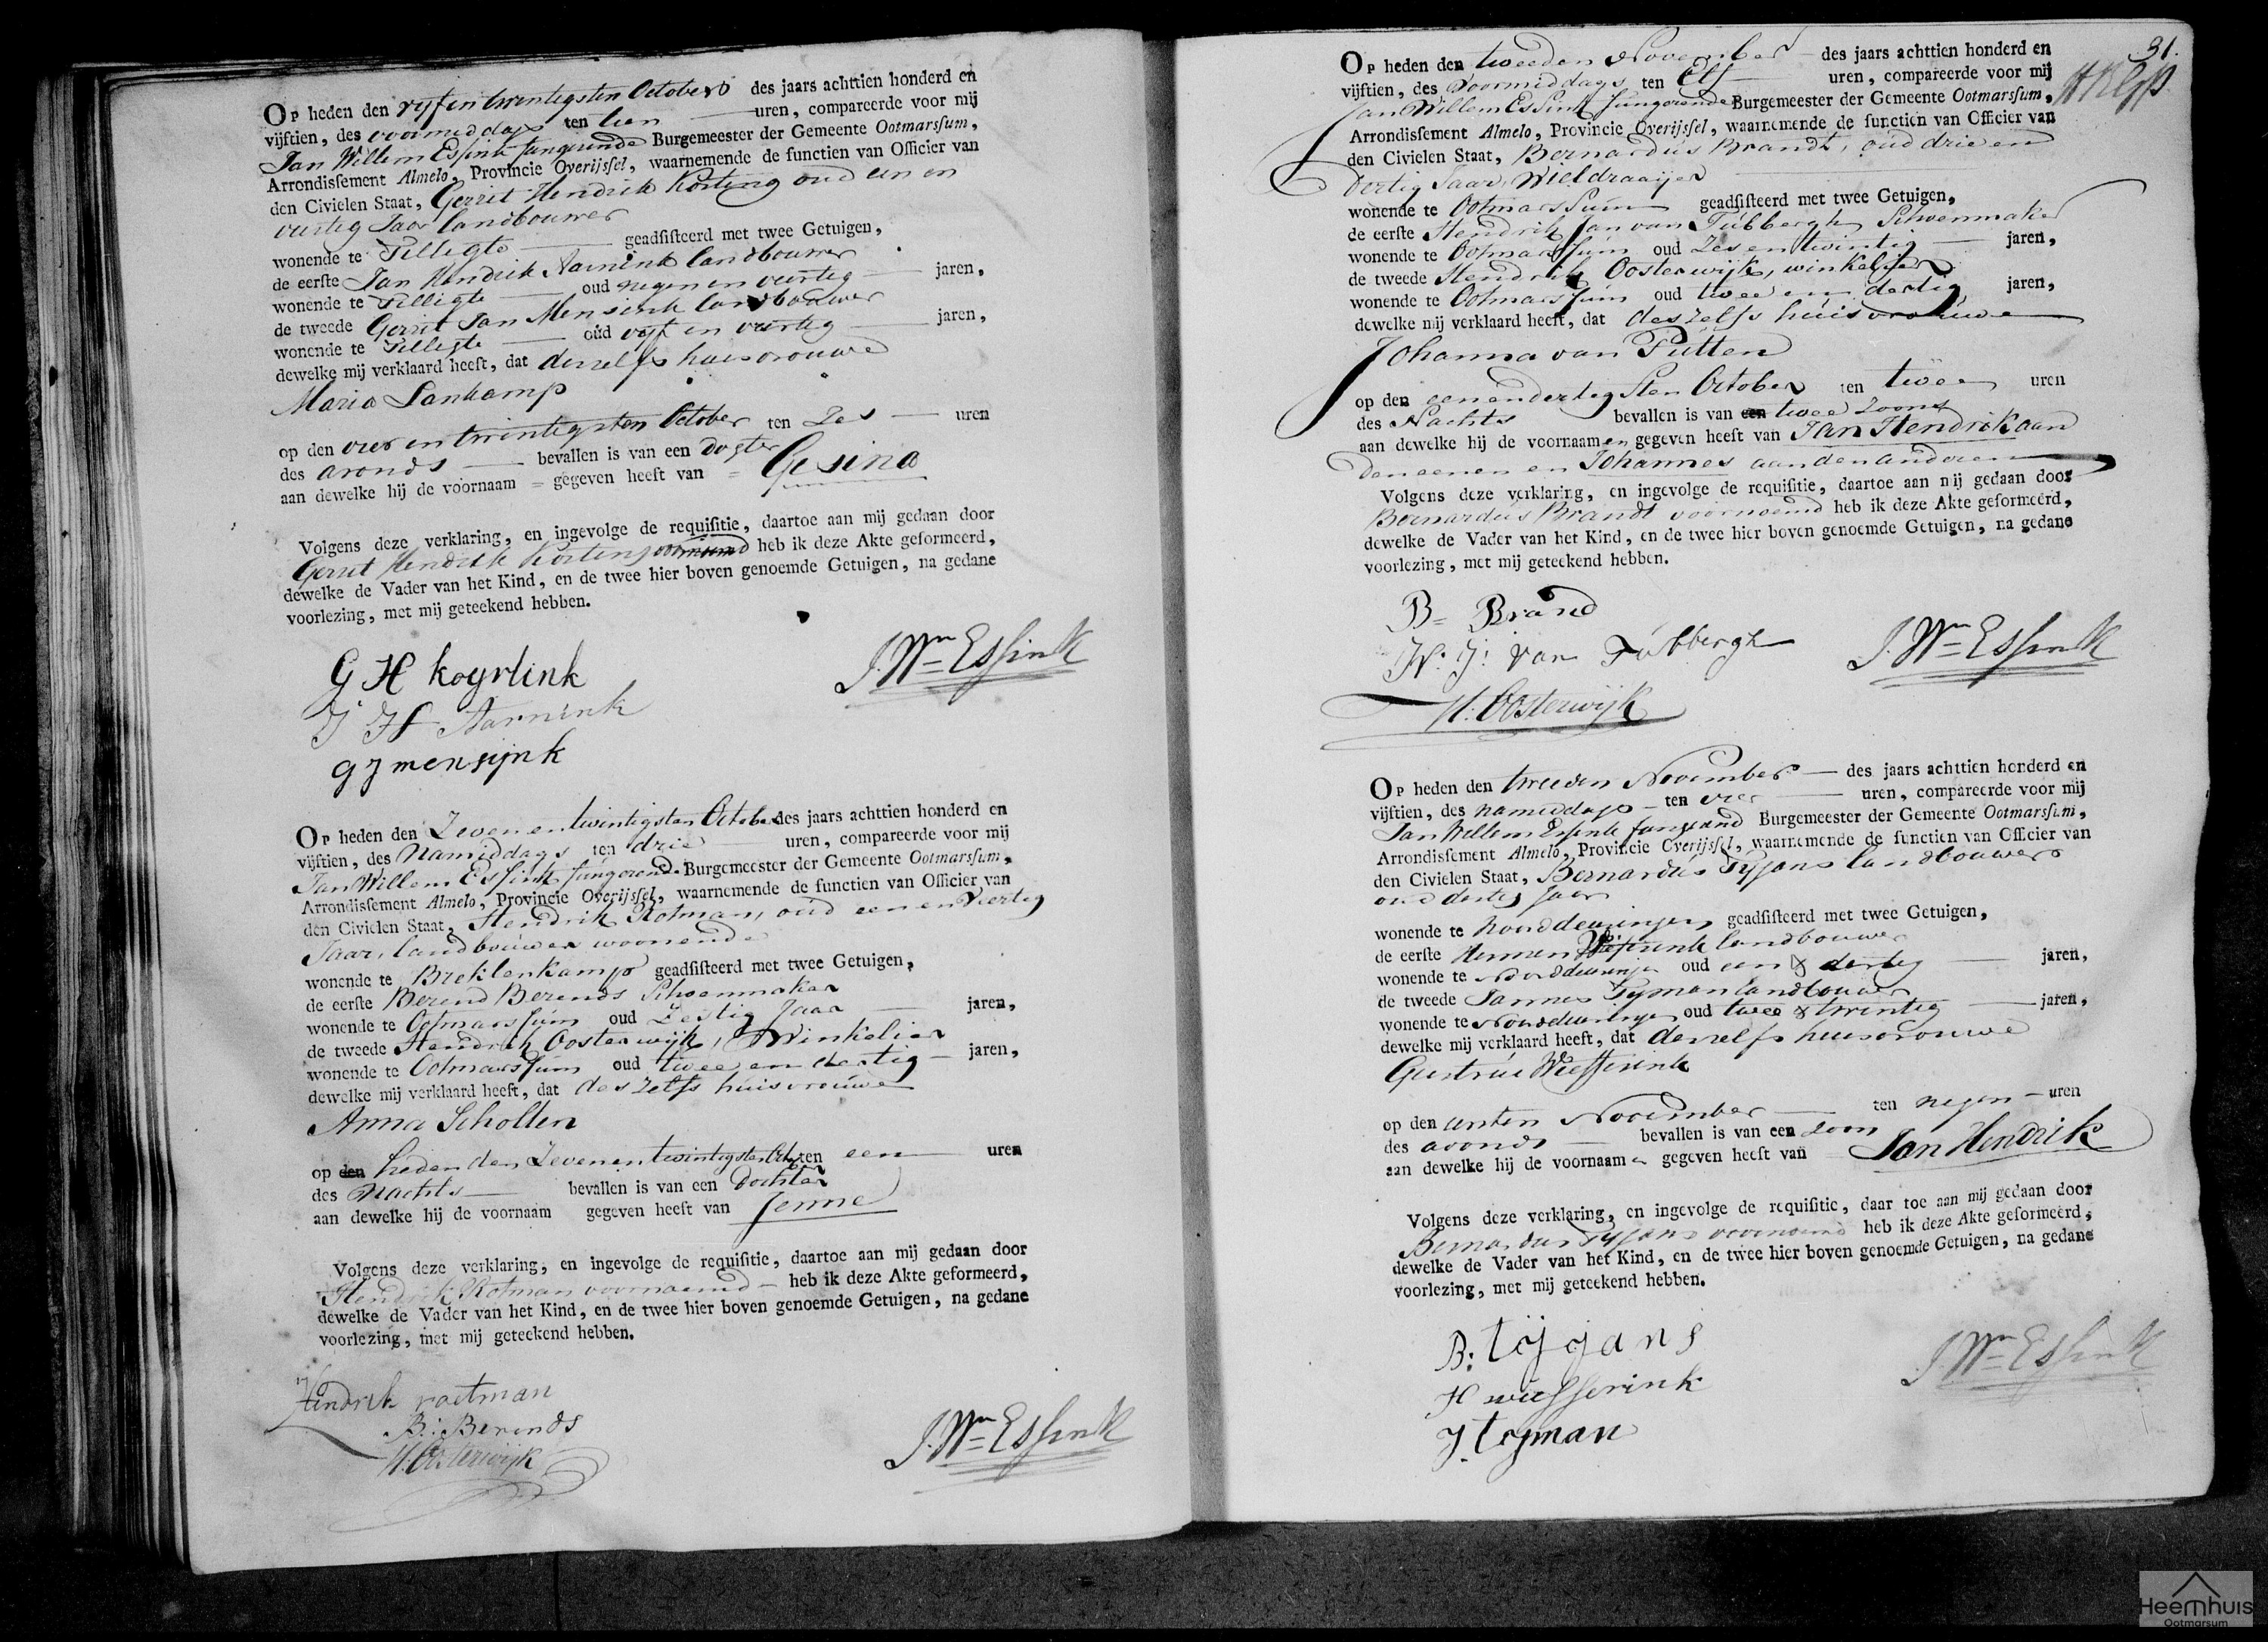 Op heden den vyf en twintigsten October des jaars achttien honderd en
vijftien, des voormiddags ten tien uren, compareerde voor mij
Jan Willem Essink fungerende Burgemeester der Gemeente Ootmarssum,
Arrondissement Almelo, Provincie Overijssel, waarnemende de functien van Officier van
den Civielen Staat, Gerrit Hendrik Korting oud een en
veertig Jaar landbouwer
wonende te Tilligte geadsisteerd met twee Getuigen,
de eerste Jan Hendrik Aarnink landbouwer
wonende te Tilligte oud negen en veertig jaren,
de tweede Gerrit Jan Mensink landbouwer
wonende te Tilligte oud vyf en veertig jaren,
dewelke mij verklaard heeft, dat deszelfs huisvrouwe
Maria Lankamp
op den vier en twintigsten October ten Zes uren
des avonds bevallen is van een dogter
aan dewelke hij de voornaam = gegeven heeft van = Gesina
Volgens deze verklaring, en ingevolge de requisitie, daartoe aan mij gedaan door
Gerrit Hendrik voornoemd heb ik deze Akte geformeerd,
dewelke de Vader van het Kind, en de twee hier boven genoemde Getuigen, na gedane
voorlezing, met mij geteekend hebben.
G H
J. Wm Essink
J H Aarnink
g J mensijnk
Op heden den Zeven en twintigsten October des jaars achttien honderd en
vijftien, des Namiddags ten drie uren, compareerde voor mij
Jan Willem Essink fungerend Burgemeester der Gemeente Ootmarssum,
Arrondissement Almelo, Provincie Overijssel, waarnemende de functien van Officier van
den Civielen Staat, Hendrik Rotman, oud een en Veertig
Jaar, landbouwer woonende
wonende te Breklenkamp geadsisteerd met twee Getuigen,
de eerste Berend Berends Schoenmaker
wonende te Ootmarssum oud Zestig Jaar jaren,
de tweede Hendrik Oosterwijk, Winkelier
wonende te Ootmarssum oud twee en dertig jaren,
dewelke mij verklaard heeft, dat deszelfs huisvrouwe
Anna Scholten
op den heden den Zeven en twintigsten ten een uren
des Nachts bevallen is van een dochter
aan dewelke hij de voornaam gegeven heeft van Jenne
Volgens deze verklaring, en ingevolge de requisitie, daartoe aan mij gedaan door
Hendrik Rotman voornoemd heb ik deze Akte geformeerd,
dewelke de Vader van het Kind, en de twee hier boven genoemde Getuigen, na gedane
voorlezing, met mij geteekend hebben.
Hendrik roetman
B: Berends
H: Oosterwijk
J. Wm Essink
31.
Op heden den tweeden November des jaars achttien honderd en
vijftien, des Voormiddags ten Elf uren, compareerde voor mij
Jan Willem Essink fungerende Burgemeester der Gemeente Ootmarssum,
Arrondissement Almelo, Provincie Overijssel, waarnemende de functien van Officier van
den Civielen Staat, Bernardus Brandt, oud drie en
dertig Jaar, Wieldraaijer
wonende te Ootmarssum geadsisteerd met twee Getuigen,
de eerste Hendrik Jan van Tubbergh, Schoenmaker
wonende te Ootmarssum oud Zes en twintig jaren,
de tweede Hendrik Oosterwijk, winkelier
wonende te Ootmarssum oud twee en dertig jaren,
dewelke mij verklaard heeft, dat deszelfs huisvrouwe
Johanna van Putten
op den een en dertigsten October ten twee uren
des Nachts bevallen is van een twee zoons
aan dewelke hij de voornaamen gegeven heeft van Jan Hendrik aan
den eenen en Johannes aan den anderen
Volgens deze verklaring, en ingevolge de requisitie, daartoe aan mij gedaan door
Bernardus Brandt voornoemd heb ik deze Akte geformeerd,
dewelke de Vader van het Kind, en de twee hier boven genoemde Getuigen, na gedane
voorlezing, met mij geteekend hebben.
B= Brand
H: J: van Tubbergh
H: Oosterwijk
J. Wm Essink
Op heden den tweeden November des jaars achttien honderd en
vijftien, des namiddags ten vier uren, compareerde voor mij
Jan Willem Essink fungeand Burgemeester der Gemeente Ootmarssum,
Arrondissement Almelo, Provincie Overijssel, waarnemende de functien van Officier van
den Civielen Staat, Bernardus Tyjans landbouwer
oud dertig Jaar
wonende te Noorddeuringen geadsisteerd met twee Getuigen,
de eerste Hermen landbouwer
wonende te Noorddeuringen oud een & dertig jaren,
de tweede Jannes Tyman landbouwer
wonende te Noorddeuringen oud twee & twintig jaren,
dewelke mij verklaard heeft, dat deszelfs huisvrouwe
Geertrui Wiefferink
op den eersten November ten negen uren
des avonds bevallen is van een zoon
aan dewelke hij de voornaam gegeven heeft van Jan Hendrik
Volgens deze verklaring, en ingevolge de requisitie, daar toe aan mij gedaan door
Bernardus Tyjans voornoemd heb ik deze Akte geformeerd,
dewelke de Vader van het Kind, en de twee hier boven genoemde Getuigen, na gedane
voorlezing, met mij geteekend hebben.
B: tijjans
H wiefferink
J. tyman
J. Wm Essink
Heemhuis
Ootmarsum